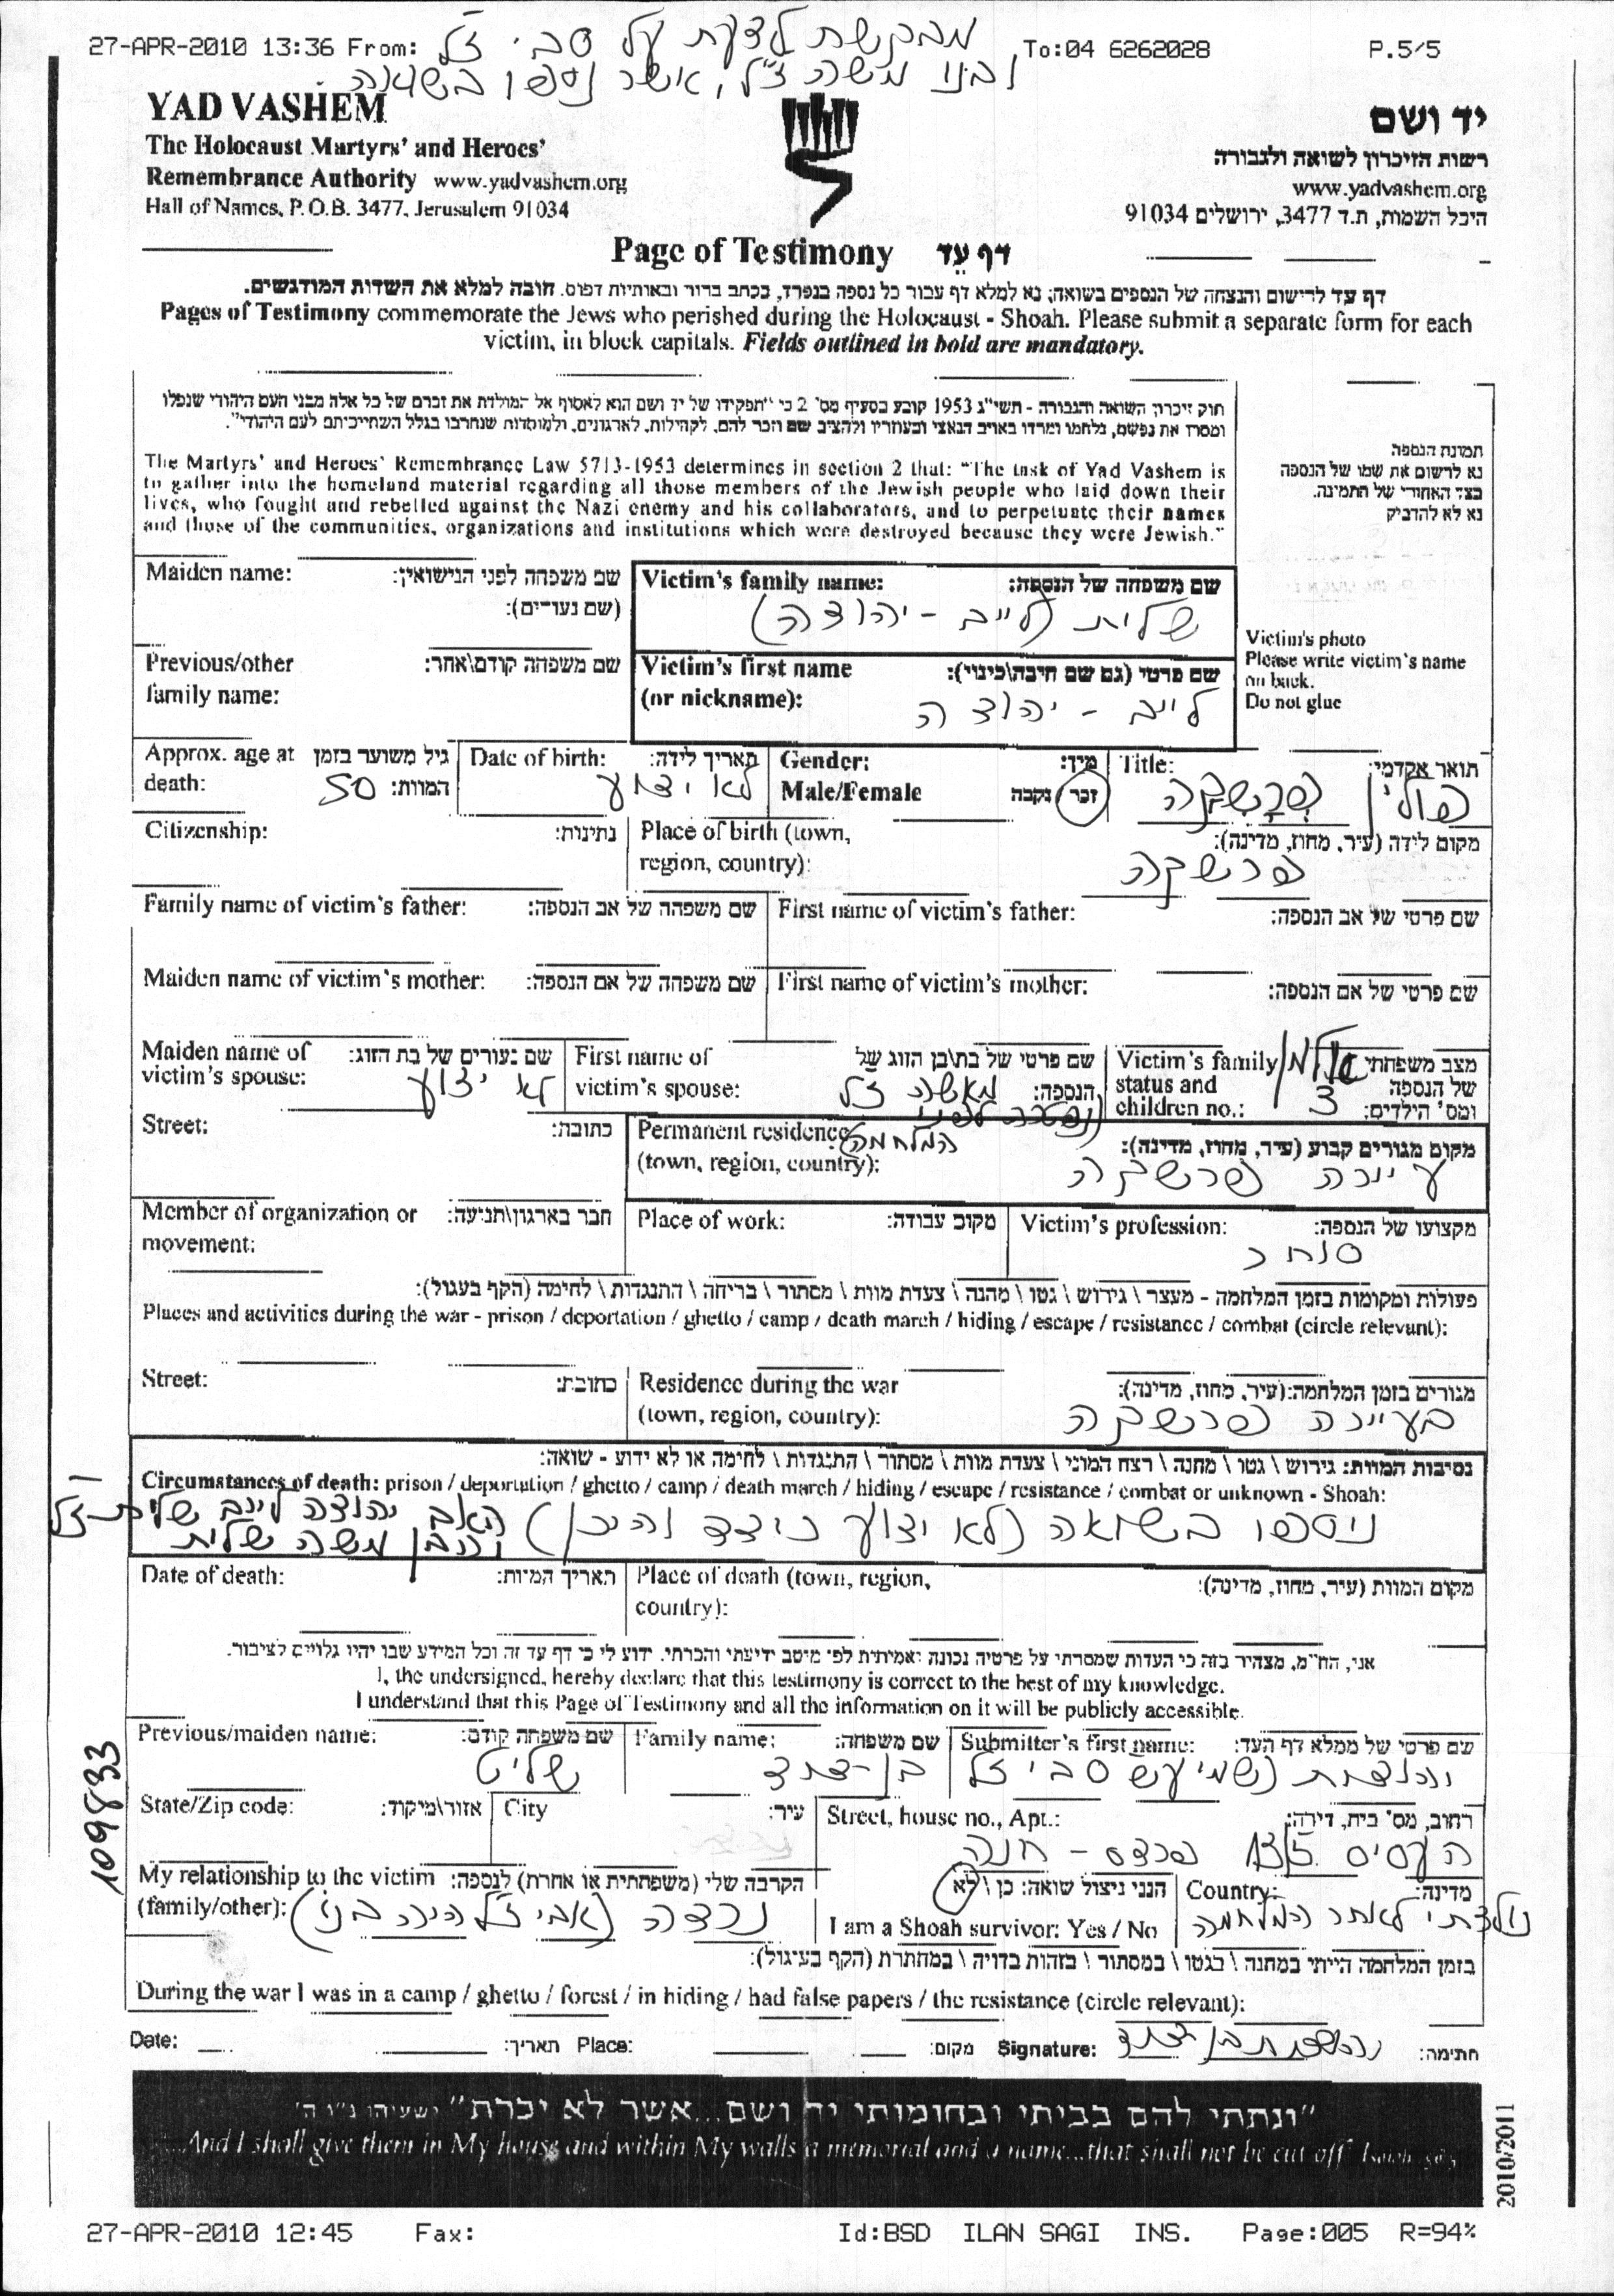 27-APR-2010 13:36 From: To:04 6262028 P.5/5
מבקשת לדעת על סבי ז"ל
ובנו משה ז"ל, אשר נספו בשואה
YAD VASHEM
The Holocaust Martyrs' and Heroes'
Remembrance Authority www.yadvashem.org
Hall of Names, P.O.B. 3477, Jerusalem 91034
יד ושם
רשות הזיכרון לשואה ולגבורה
www.yadvashem.org
היכל השמות, ת.ד 3477, ירושלים 91034
Page of Testimony דף עֵד
דף עד לרישום והנצחה של הנספים בשואה; נא למלא דף עבור כל נספה בנפרד, בכתב ברור ובאותיות דפוס. חובה למלא את השדות המודגשים.
Pages of Testimony commemorate the Jews who perished during the Holocaust - Shoah. Please submit a separate form for each
victim, in block capitals. Fields outlined in bold are mandatory.
חוק זיכרון השואה והגבורה - תשי"ג 1953 קובע בסעיף מס' 2 כי "תפקידו של יד ושם הוא לאסוף אל המולדת את זכרם של כל אלה מבני העם היהודי שנפלו
ומסרו את נפשם, נלחמו ומרדו באויב הנאצי ובעוזריו ולהציב שם וזכר להם, לקהילות, לארגונים, ולמוסדות שנחרבו בגלל השתייכותם לעם היהודי".
The Martyrs' and Heroes' Remembrance Law 5713-1953 determines in section 2 that: "The task of Yad Vashem is
to gather into the homeland material regarding all those members of the Jewish people who laid down their
lives, who fought and rebelled against the Nazi enemy and his collaborators, and to perpetuate their names
and those of the communities, organizations and institutions which were destroyed because they were Jewish."
תמונת הנספה
נא לרשום את שמו של הנספה
בצד האחורי של התמונה.
נא לא להדביק
Victim's photo
Please write victim's name
on back.
Do not glue
Maiden name: שם משפחה לפני הנישואין:
(שם נעורים):
Victim's family name: שם משפחה של הנספה:
שלית (לייב - יהודה)
Previous/other שם משפחה קודם\אחר:
family name:
Victim's first name שם פרטי (גם שם חיבה\כינוי):
(or nickname): לייב - יהודה
Approx. age at גיל משוער בזמן
death: המוות: 50
Date of birth: תאריך לידה:
לא ידוע
Gender: מין:
Male/Female זכר / נקבה
Title: תואר אקדמי:
פולין פרשקה
Citizenship: נתינות:
Place of birth (town, מקום לידה (עיר, מחוז, מדינה):
region, country): פרשקה
Family name of victim's father: שם משפחה של אב הנספה:
First name of victim's father: שם פרטי של אב הנספה:
Maiden name of victim's mother: שם משפחה של אם הנספה:
First name of victim's mother: שם פרטי של אם הנספה:
Maiden name of שם נעורים של בת הזוג:
victim's spouse: לא ידוע
First name of שם פרטי של בת\בן הזוג של
victim's spouse: הנספה: מאשה ז"ל
(נפטרה לפני
המלחמה)
Victim's family מצב משפחתי אלמן
status and של הנספה
children no.: ומס' הילדים: 3
Street: כתובת:
Permanent residence מקום מגורים קבוע (עיר, מחוז, מדינה):
(town, region, country): עיירה פרשקה
Member of organization or חבר בארגון\תנועה:
movement:
Place of work: מקום עבודה:
Victim's profession: מקצועו של הנספה:
סוחר
פעולות ומקומות בזמן המלחמה - מעצר \ גירוש \ גטו \ מחנה \ צעדת מוות \ מסתור \ בריחה \ התנגדות \ לחימה (הקף בעגול):
Places and activities during the war - prison / deportation / ghetto / camp / death march / hiding / escape / resistance / combat (circle relevant):
Street: כתובת:
Residence during the war מגורים בזמן המלחמה:(עיר, מחוז, מדינה):
(town, region, country): בעיירה פרשקה
נסיבות המוות: גירוש \ גטו \ מחנה \ רצח המוני \ צעדת מוות \ מסתור \ התנגדות \ לחימה או לא ידוע - שואה:
Circumstances of death: prison / deportation / ghetto / camp / death march / hiding / escape / resistance / combat or unknown - Shoah:
ניספו בשואה (לא ידוע כיצד והיכן) האב יהודה לייב שלית ז"ל
והבן משה שלית
Date of death: תאריך המוות:
Place of death (town, region, מקום המוות (עיר, מחוז, מדינה):
country):
אני, הח"מ, מצהיר בזה כי העדות שמסרתי על פרטיה נכונה ואמיתית לפי מיטב ידיעתי והכרתי. ידוע לי כי דף עד זה וכל המידע שבו יהיו גלויים לציבור.
I, the undersigned, hereby declare that this testimony is correct to the best of my knowledge.
I understand that this Page of Testimony and all the information on it will be publicly accessible.
Previous/maiden name: שם משפחה קודם:
שליט
Family name: שם משפחה:
בן-דוד
Submitter's first name: שם פרטי של ממלא דף העד:
סבי ז"ל
State/Zip code: אזור\מיקוד:
City עיר:
Street, house no., Apt.: רחוב, מס' בית, דירה:
פרדס - חנה
My relationship to the victim הקרבה שלי (משפחתית או אחרת) לנספה:
(family/other): נכדה (אבי ז"ל היה בנו)
הנני ניצול שואה: כן \ לא
I am a Shoah survivor: Yes / No
Country: מדינה:
נולדתי לאחר המלחמה
בזמן המלחמה הייתי במחנה \ בגטו \ במסתור \ בזהות בדויה \ במחתרת (הקף בעיגול):
During the war I was in a camp / ghetto / forest / in hiding / had false papers / the resistance (circle relevant):
Date: תאריך: Place: מקום: Signature: חתימה:
"ונתתי להם בביתי ובחומותי יד ושם...אשר לא יכרת" ישעיהו נ"ו ה'
And I shall give them in My house and within My walls a memorial and a name...that shall not be cut off
109833
2010/2011
27-APR-2010 12:45 Fax: Id:BSD ILAN SAGI INS. Page:005 R=94%